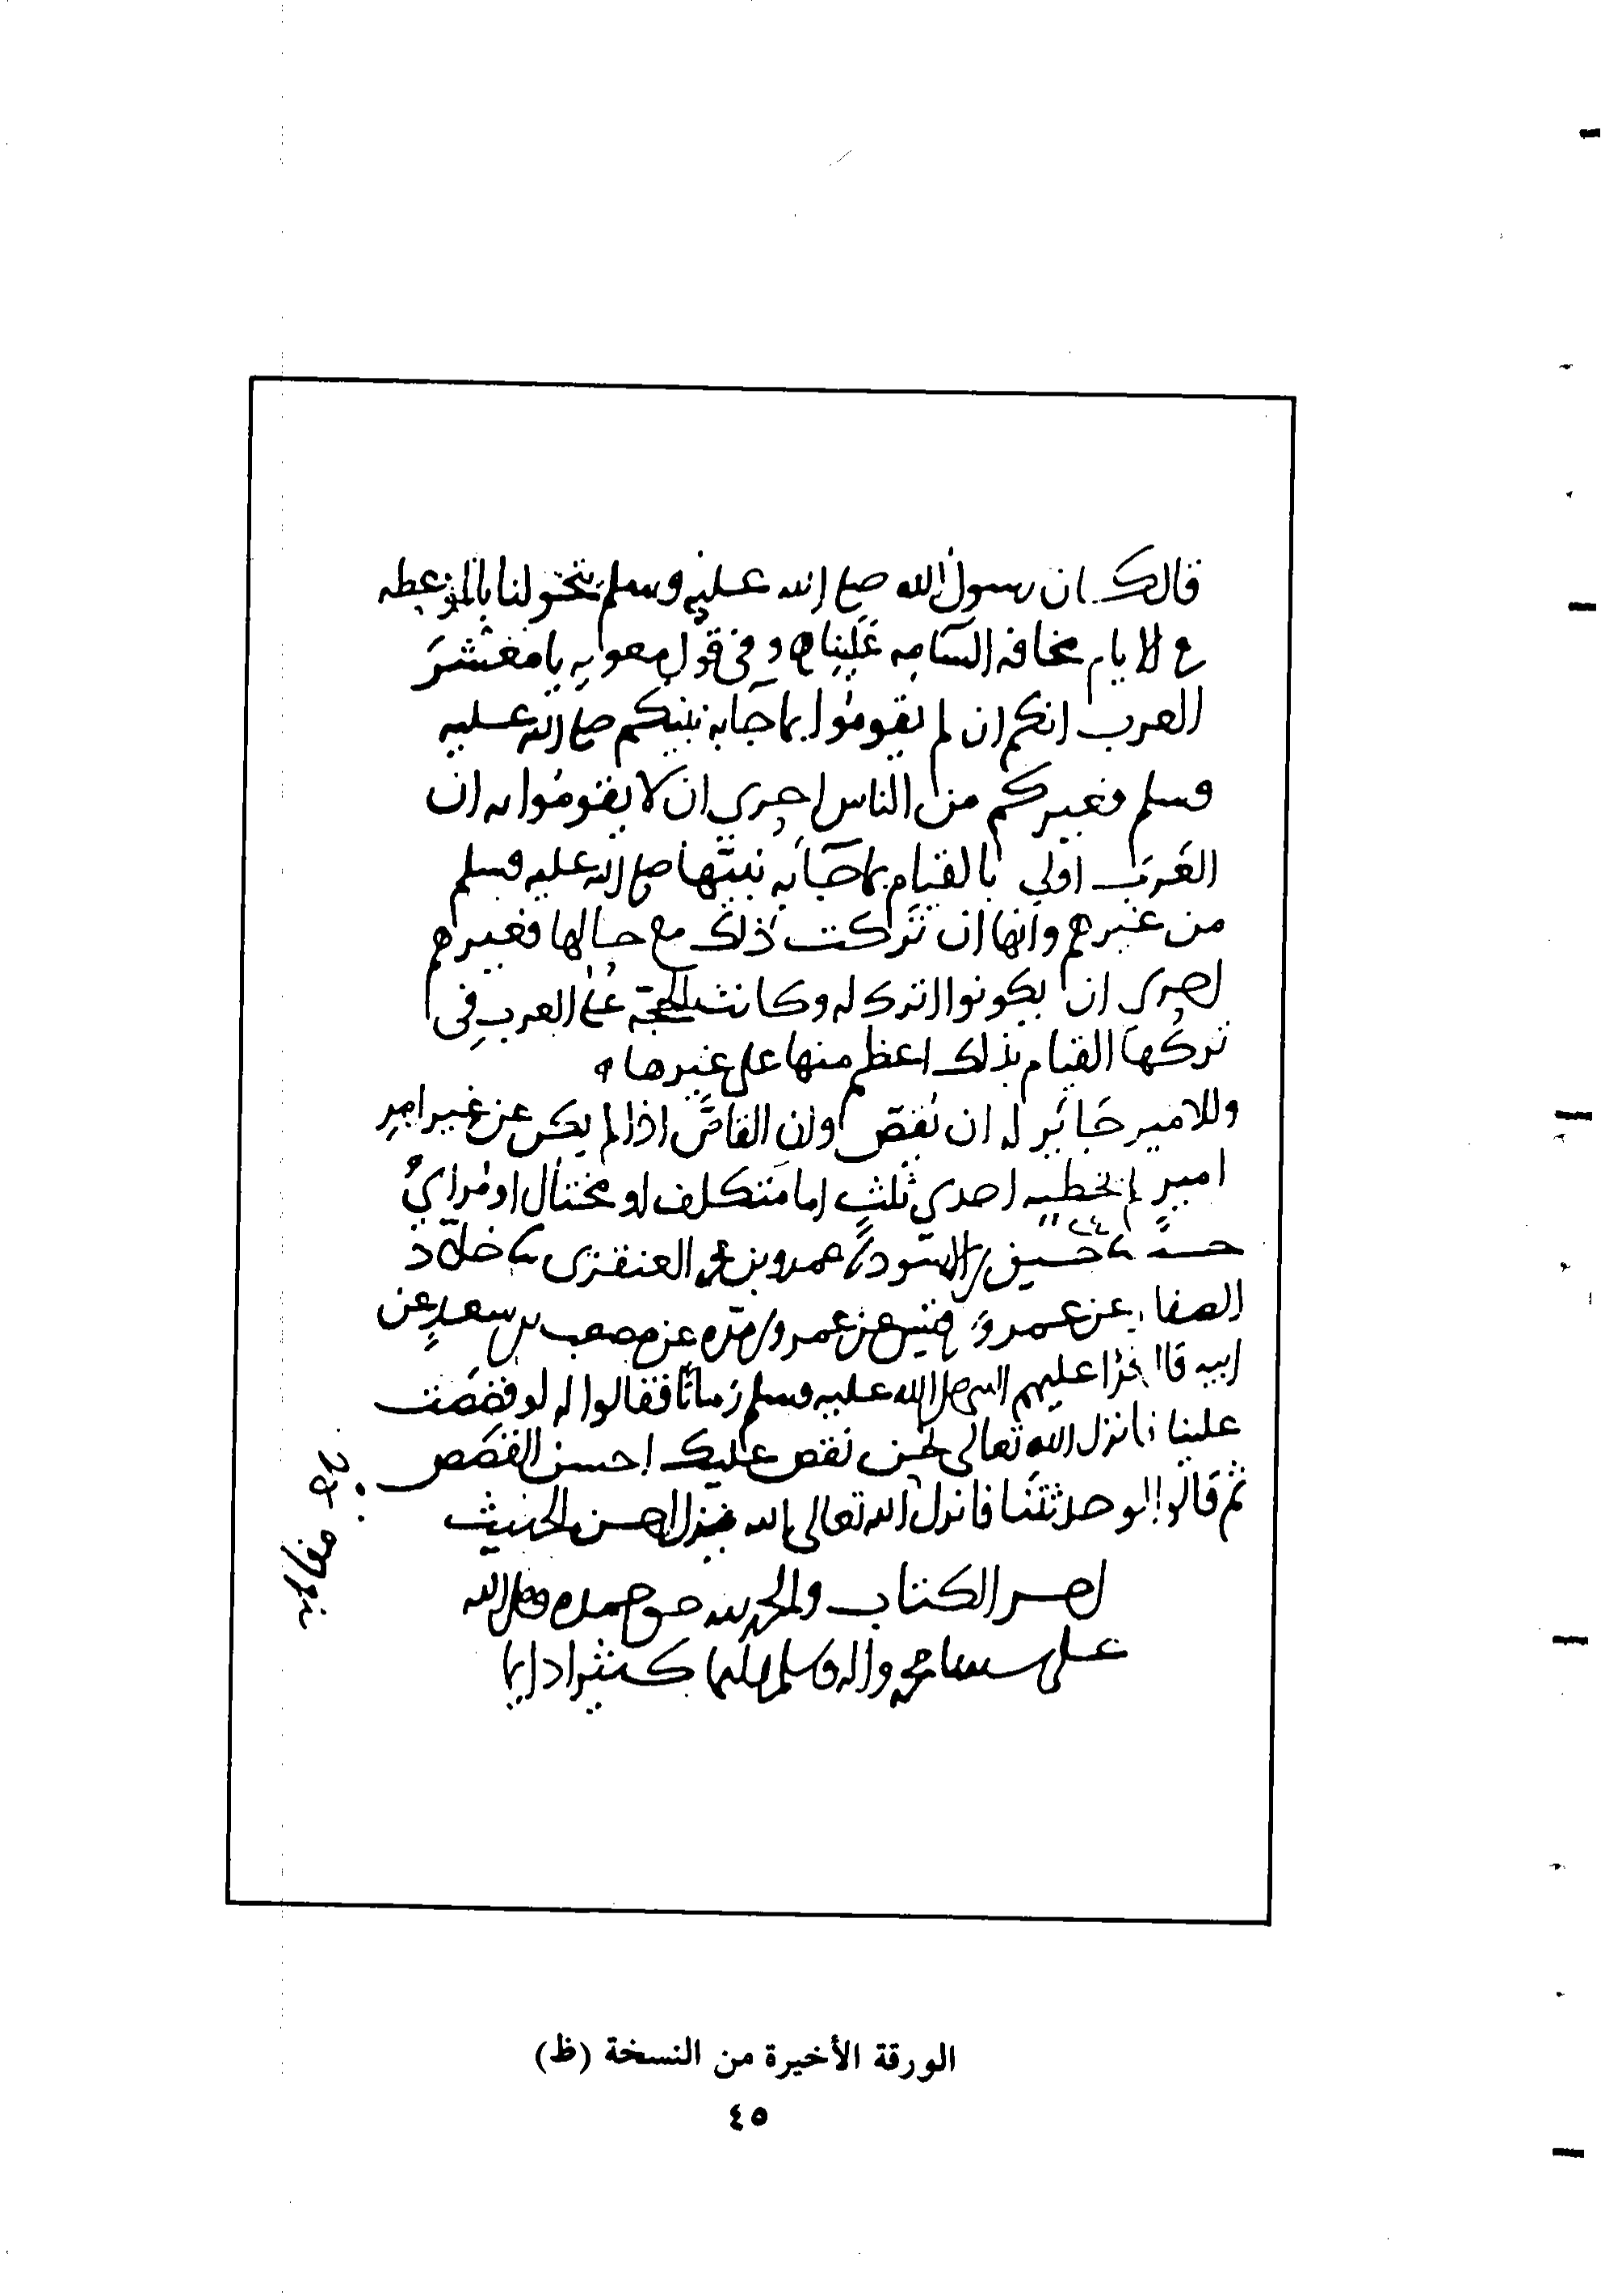 قال كان رسول الله صلى الله عليه وسلم يتخولنا بالموعظه
في الايام مخافه السامه علينا وفي قول معويه يا معشر
العرب انكم ان لم تقوموا بما جا به نبيكم صلى الله عليه
وسلم فغيركم من الناس احرى ان لا يقوموا به ان
العرب اولى بالقيام بما جا به نبيها صلى الله عليه وسلم
من غيرهم وانها ان تركت ذلك مع حالها فغيرهم
احرى ان يكونوا اترك له وكانت الحجة على العرب في
تركها القيام بذلك اعظم منها على غيرها
وللامير جايز له ان يقص وان القاص اذا لم يكن عن غير امر
امير لم تخطيه احدي ثلث اما متكلف او مختال او مراي
حسين الاسود عمرو بن محمد العنقزى خلاد
الصفار عن عمرو بن قيس عن عمرو بن مره عن مصعب بن سعد عن
ابيه قال قرا عليهم النبي صلى الله عليه وسلم زمانا فقالوا له لو قصصت
علينا فانزل الله تعالى نحن نقص عليك احسن القصص
ثم قالوا لو حدثتنا فانزل الله تعالى الله نزل احسن الحديث
اخر الكتاب والحمد لله حق حمده وصلى الله
على سيدنا محمد واله وسلم تسليما كثيرا دايما
مقابله
الورقة الأخيرة من النسخة (ظ)
٤٥